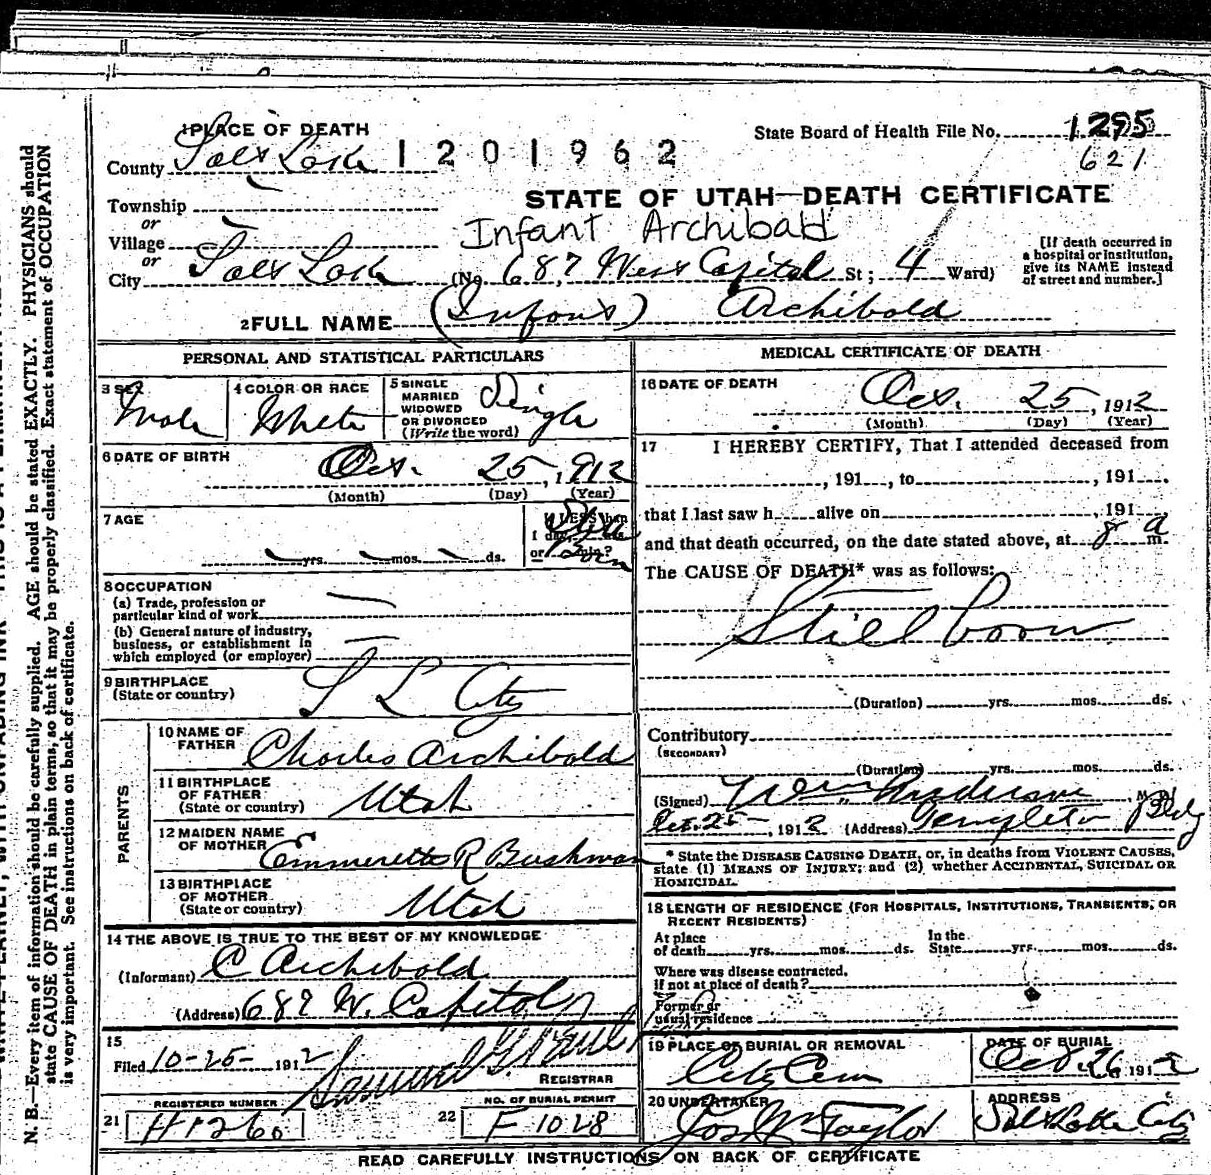 1 PLACE OF DEATH
State Board of Health File No. 1295
County Salt Lake 1201962
621
STATE OF UTAH—DEATH CERTIFICATE
Township
or
Village
Infant Archibald
or
City Salt Lake (No. 687 West Capitol St; 4 Ward)
[If death occurred in
a hospital or institution,
give its NAME instead
of street and number.]
2 FULL NAME (Infant) Archibald
PERSONAL AND STATISTICAL PARTICULARS
3 SEX
Male
4 COLOR OR RACE
White
5 SINGLE
MARRIED
WIDOWED
OR DIVORCED
(Write the word)
Single
6 DATE OF BIRTH
Oct. 25, 1912
(Month) (Day) (Year)
7 AGE
yrs. mos. ds.
If LESS than
1 day, hrs.
or min.?
Still
Born
8 OCCUPATION
(a) Trade, profession or
particular kind of work
(b) General nature of industry,
business, or establishment in
which employed (or employer)
9 BIRTHPLACE
(State or country)
S L City
PARENTS
10 NAME OF
FATHER
Charles Archibald
11 BIRTHPLACE
OF FATHER
(State or country)
Utah
12 MAIDEN NAME
OF MOTHER
Emmeretta R Bushman
13 BIRTHPLACE
OF MOTHER
(State or country)
Utah
14 THE ABOVE IS TRUE TO THE BEST OF MY KNOWLEDGE
(Informant) C Archibald
(Address) 687 W. Capitol
15
Filed 10-25- 1912
REGISTRAR
REGISTERED NUMBER
21 H1260
NO. OF BURIAL PERMIT
22 F 1028
MEDICAL CERTIFICATE OF DEATH
16 DATE OF DEATH
Oct. 25, 1912
(Month) (Day) (Year)
17 I HEREBY CERTIFY, That I attended deceased from
, 191 , to , 191 .
that I last saw h alive on , 191
and that death occurred, on the date stated above, at 8 a m.
The CAUSE OF DEATH* was as follows:
Still born
(Duration) yrs. mos. ds.
Contributory
(SECONDARY)
(Duration) yrs. mos. ds.
(Signed) Wm. Anderson, M. D.
Oct. 25-, 1912 (Address) Templeton Bldg
* State the DISEASE CAUSING DEATH, or, in deaths from VIOLENT CAUSES,
state (1) MEANS OF INJURY; and (2) whether ACCIDENTAL, SUICIDAL OR
HOMICIDAL.
18 LENGTH OF RESIDENCE (FOR HOSPITALS, INSTITUTIONS, TRANSIENTS, OR
RECENT RESIDENTS)
At place
of death yrs. mos. ds.
In the
State yrs. mos. ds.
Where was disease contracted,
if not at place of death?
Former or
usual residence
19 PLACE OF BURIAL OR REMOVAL
City Cem
DATE OF BURIAL
Oct. 26 1912
20 UNDERTAKER
Jos Wm Taylor
ADDRESS
Salt Lake City
READ CAREFULLY INSTRUCTIONS ON BACK OF CERTIFICATE
N. B.—Every item of information should be carefully supplied. AGE should be stated EXACTLY. PHYSICIANS should
state CAUSE OF DEATH in plain terms, so that it may be properly classified. Exact statement of OCCUPATION
is very important. See instructions on back of certificate.